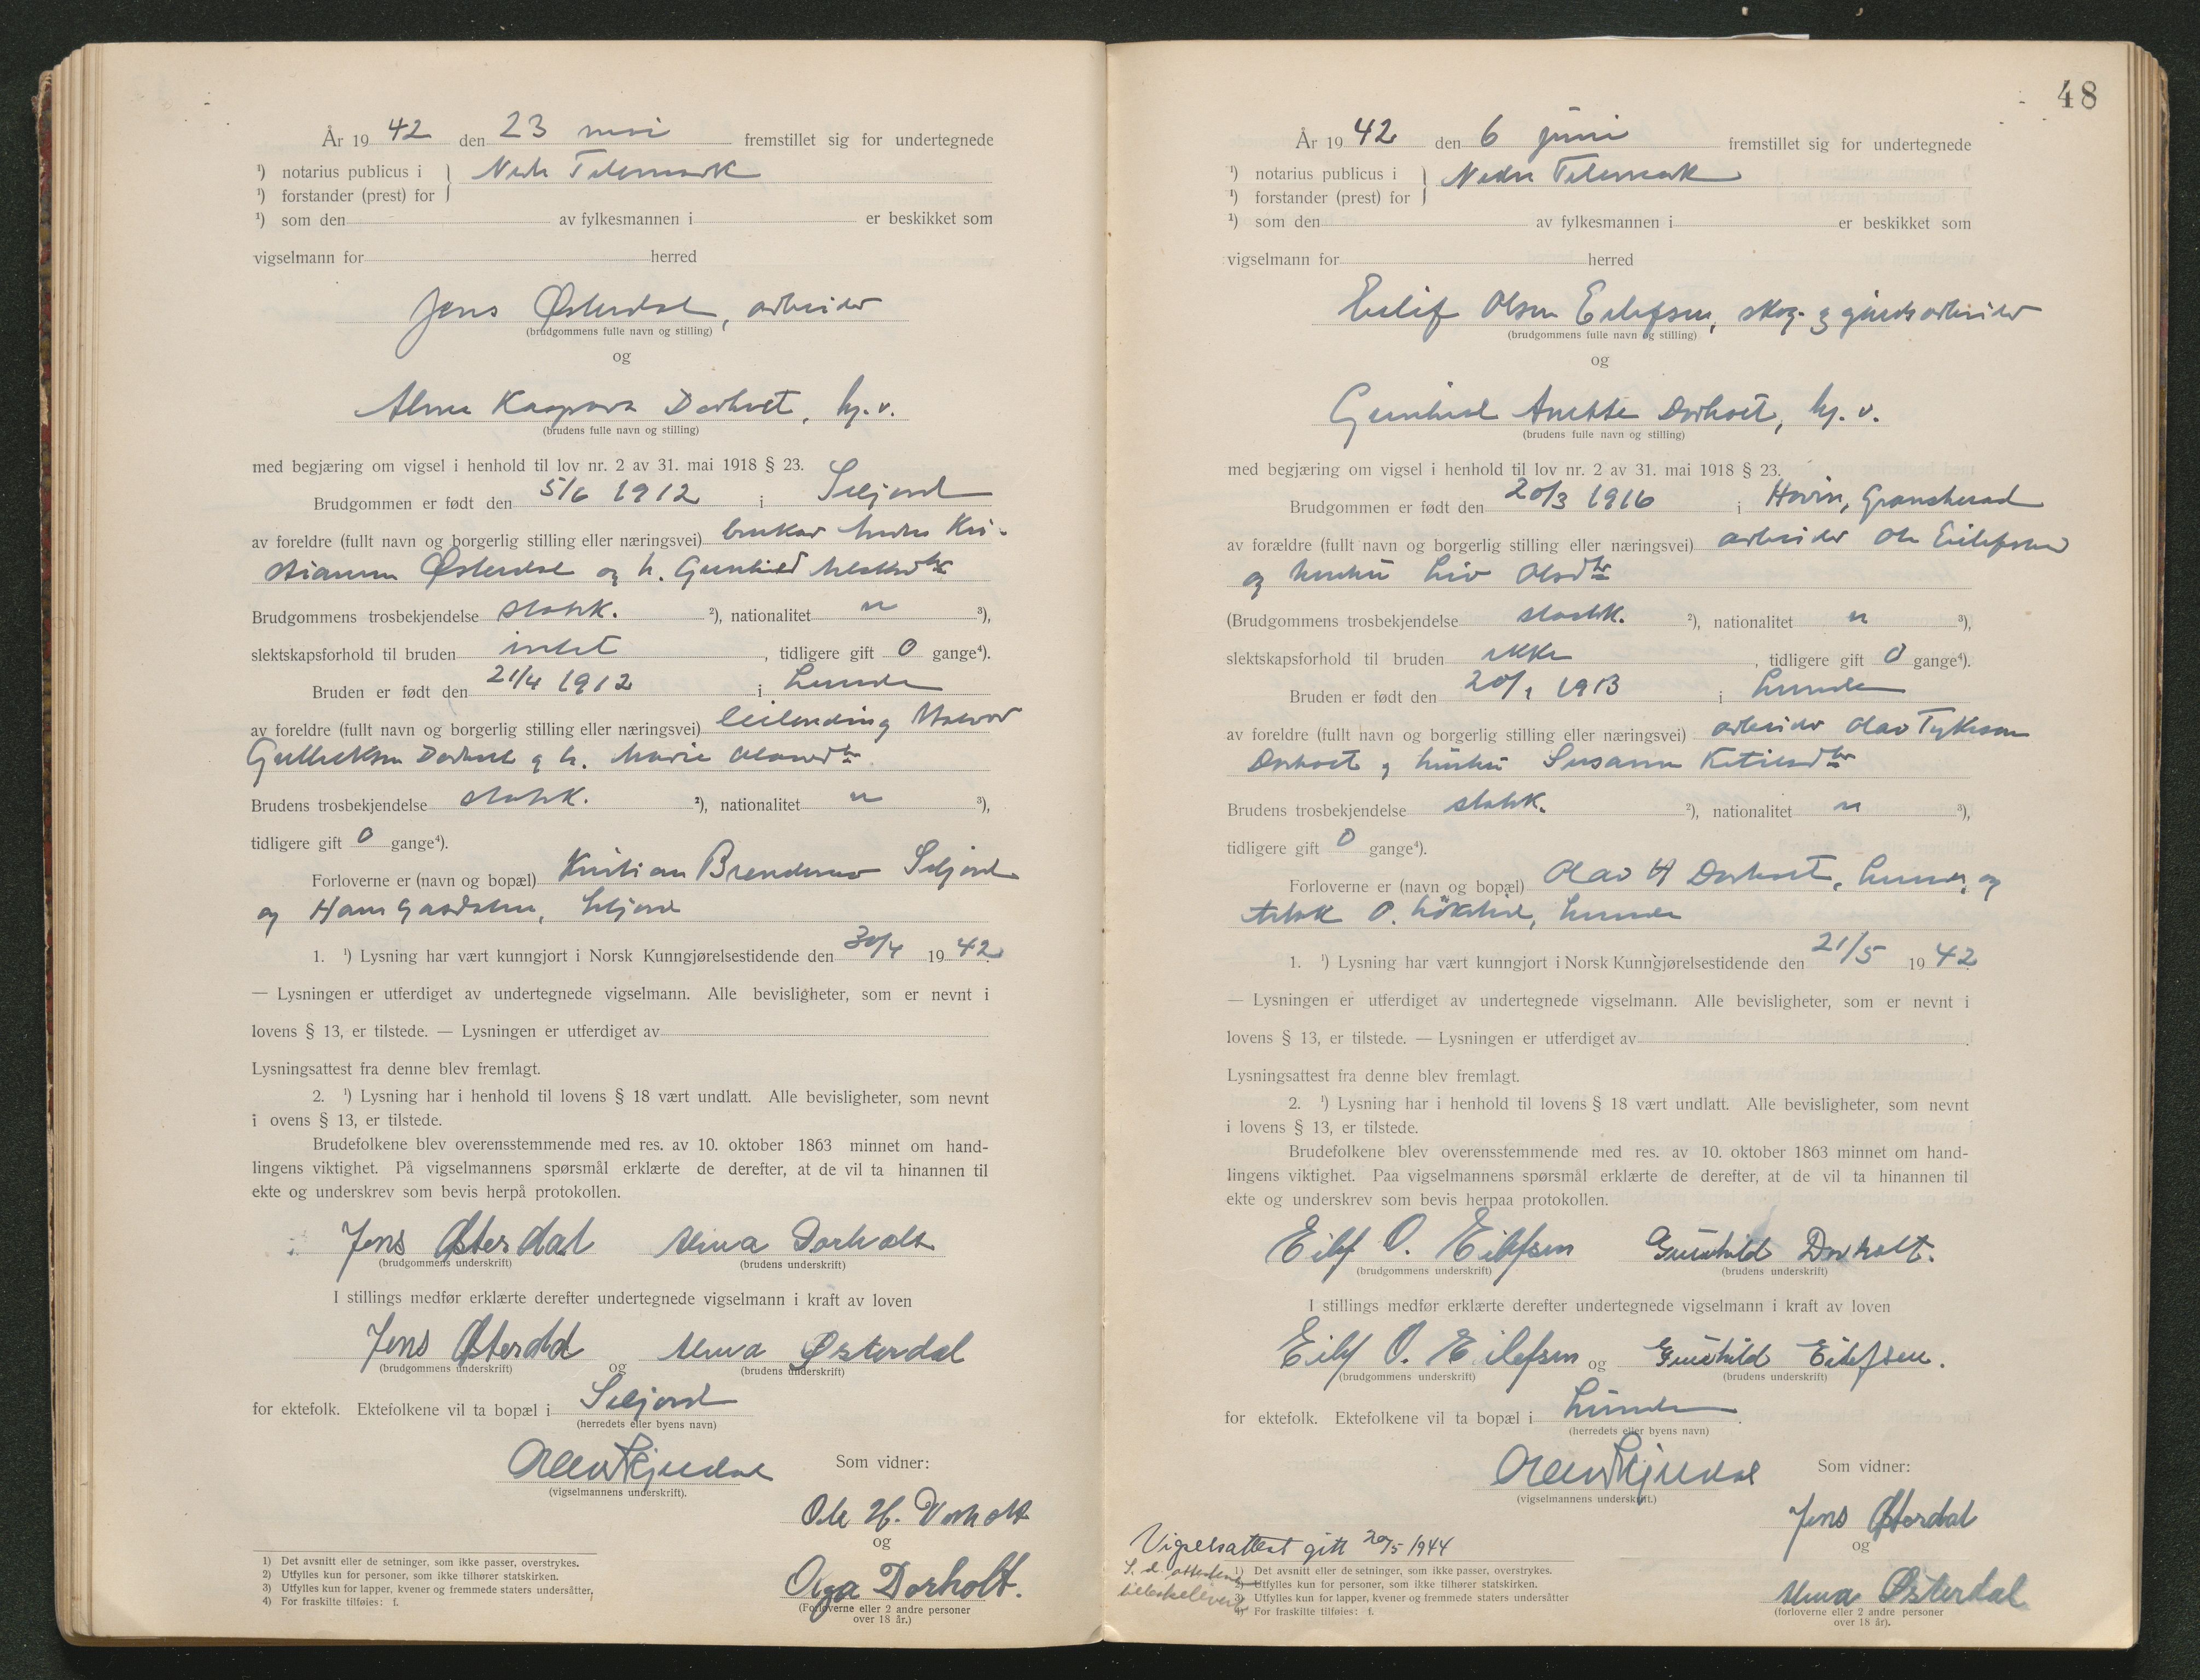 År 19 42 den 23 mai fremstillet sig for undertegnede
¹) notarius publicus i } Nedre Telemark
¹) forstander (prest) for
¹) som den av fylkesmannen i er beskikket som
vigselmann for herred
Jens Østerdal, arbeider
(brudgommens fulle navn og stilling)
og
Alma Kaspara Dorholt, hj. v.
(brudens fulle navn og stilling)
med begjæring om vigsel i henhold til lov nr. 2 av 31. mai 1918 § 23.
Brudgommen er født den 5/6 1912 i Seljord
av foreldre (fullt navn og borgerlig stilling eller næringsvei) bruker Anders Kri-
stiansen Østerdal og h. Gunhild
Brudgommens trosbekjendelse statsk. ²), nationalitet n ³),
slektskapsforhold til bruden intet , tidligere gift 0 gange⁴).
Bruden er født den 21/4 1912 i Lunde
av foreldre (fullt navn og borgerlig stilling eller næringsvei) leilending Halvor
Gulleksen Dorholt og h. Marie Olavsdtr
Brudens trosbekjendelse statsk. ²), nationalitet n ³),
tidligere gift 0 gange⁴).
Forloverne er (navn og bopæl) Kristian Brendemo Seljord
og Hans Gardstun, Seljord
1. ¹) Lysning har vært kunngjort i Norsk Kunngjørelsestidende den 30/4 19 42
— Lysningen er utferdiget av undertegnede vigselmann. Alle bevisligheter, som er nevnt i
lovens § 13, er tilstede. — Lysningen er utferdiget av
Lysningsattest fra denne blev fremlagt.
2. ¹) Lysning har i henhold til lovens § 18 vært undlatt. Alle bevisligheter, som nevnt
i ovens § 13, er tilstede.
Brudefolkene blev overensstemmende med res. av 10. oktober 1863 minnet om hand-
lingens viktighet. På vigselmannens spørsmål erklærte de derefter, at de vil ta hinannen til
ekte og underskrev som bevis herpå protokollen.
Jens Østerdal Alma Dorholt
(brudgommens underskrift) (brudens underskrift)
I stillings medfør erklærte derefter undertegnede vigselmann i kraft av loven
Jens Østerdal og Alma Østerdal
(brudgommens underskrift) (brudens underskrift)
for ektefolk. Ektefolkene vil ta bopæl i Seljord
(herredets eller byens navn)
(vigselmannens underskrift).
Som vidner:
Ole H. Dorholt
og
Olga Dorholt.
(Forloverne eller 2 andre personer
over 18 år.)
1) Det avsnitt eller de setninger, som ikke passer, overstrykes.
2) Utfylles kun for personer, som ikke tilhører statskirken.
3) Utfylles kun for lapper, kvener og fremmede staters undersåtter,
4) For fraskilte tilføies: f.
48
År 19 42 den 6 juni fremstillet sig for undertegnede
¹) notarius publicus i } Nedre Telemark
¹) forstander (prest) for
¹) som den av fylkesmannen i er beskikket som
vigselmann for herred
Eilif Olsen Eilefsen, skog- og gårdsarbeider
(brudgommens fulle navn og stilling)
og
Gunhild Anette Dorholt, hj. v.
(brudens fulle navn og stilling)
med begjæring om vigsel i henhold til lov nr. 2 av 31. mai 1918 § 23.
Brudgommen er født den 20/3 1916 i Hovin, Gransherad
av forældre (fullt navn og borgerlig stilling eller næringsvei) arbeider Ole Eilefsen
og hustru Liv Olsdtr
(Brudgommens trosbekjendelse statsk. ²), nationalitet n ³),
slektskapsforhold til bruden ikke , tidligere gift 0 gange⁴).
Bruden er født den 20/1 1913 i Lunde
av foreldre (fullt navn og borgerlig stilling eller næringsvei) arbeider Olav Tykesson
Dorholt og hustru Susanne Ketilsdtr
Brudens trosbekjendelse statsk. ²), nationalitet n ³),
tidligere gift 0 gange⁴).
Forloverne er (navn og bopæl) Olav H Dorholt, Lunde, og
Aslak O. Løkslid, Lunde
1. ¹) Lysning har vært kunngjort i Norsk Kunngjørelsestidende den 21/5 19 42
— Lysningen er utferdiget av undertegnede vigselmann. Alle bevisligheter, som er nevnt i
lovens § 13, er tilstede. — Lysningen er utferdiget av
Lysningsattest fra denne blev fremlagt.
2. ¹) Lysning har i henhold til lovens § 18 vært undlatt. Alle bevisligheter, som nevnt
i lovens § 13, er tilstede.
Brudefolkene blev overensstemmende med res. av 10. oktober 1863 minnet om hand-
lingens viktighet. Paa vigselmannens spørsmål erklærte de derefter, at de vil ta hinannen til
ekte og underskrev som bevis herpaa protokollen.
Eilef O. Eilefsen Gunhild Dorholt.
(brudgommens underskrift) (brudens underskrift)
I stillings medfør erklærte derefter undertegnede vigselmann i kraft av loven
Eilef O. Eilefsen og Gunhild Eilefsen.
(brudgommens underskrift) (brudens underskrift)
for ektefolk. Ektefolkene vil ta bopæl i Lunde
(herredets eller byens navn)
(vigselmannens underskrift.)
Som vidner:
Jens Østerdal
og
Alma Østerdal
(forloverne eller 2 andre personer
over 18 år).
Vigselsattest gitt 20/5 1944
S. d. attestene
tilbakelevert
1) Det avsnitt eller de setninger, som ikke passer, overstrykes.
2) Utfylles kun for personer, som ikke tilhører statskirken.
3) Utfylles kun for lapper, kvener og fremmede staters undersåtter
4) For fraskilte tilføies: f.